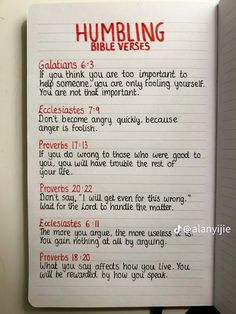 HUMBLING
BIBLE VERSES
Galatians 6:3
If you think you are too important to
help someone, you are only fooling yourself.
You are not that important.
Ecclesiastes 7:9
Don't become angry quickly, because
anger is foolish.
Proverbs 17:13
If you do wrong to those who were good to
you, you will have trouble the rest of
your life.
Proverbs 20:22
Don't say, "I will get even for this wrong."
Wait for the Lord to handle the matter.
@alanyijie
Ecclesiastes 6:11
The more you argue, the more useless it is.
You gain nothing at all by arguing.
Proverbs 18:20
What you say affects how you live. You
will be rewarded by how you speak.